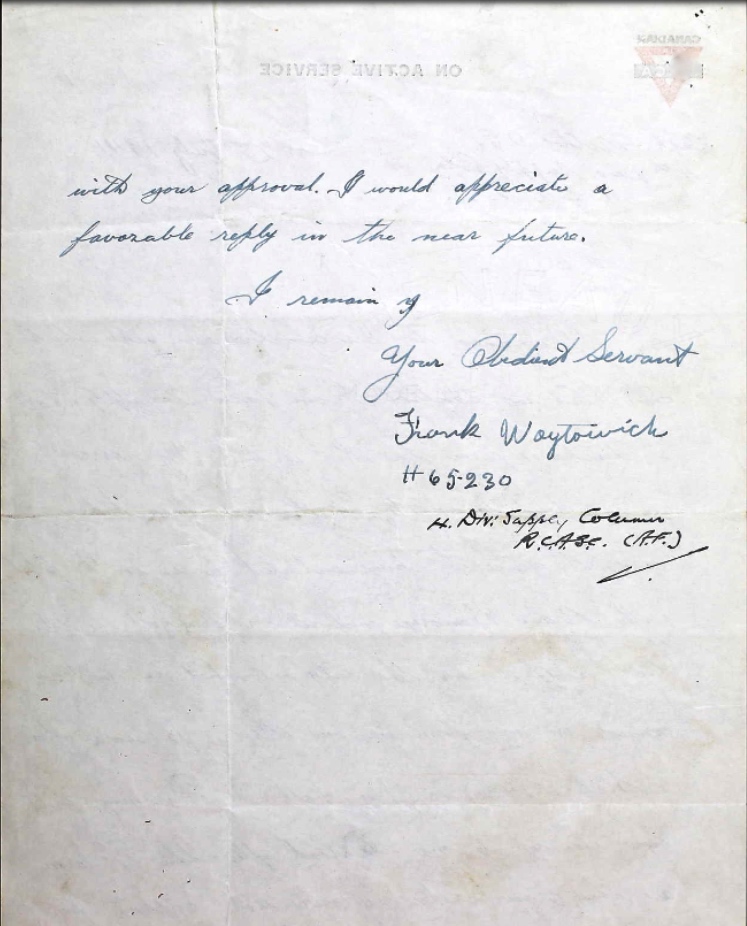 CANADIAN
ON ACTIVE SERVICE
with your approval. I would appreciate a
favorable reply in the near future.
I remain
Your Obediant Servant
Frank Waytowich
H 65-230
4. Div: Supply Column
R.C.A.S.C. (A.F.)